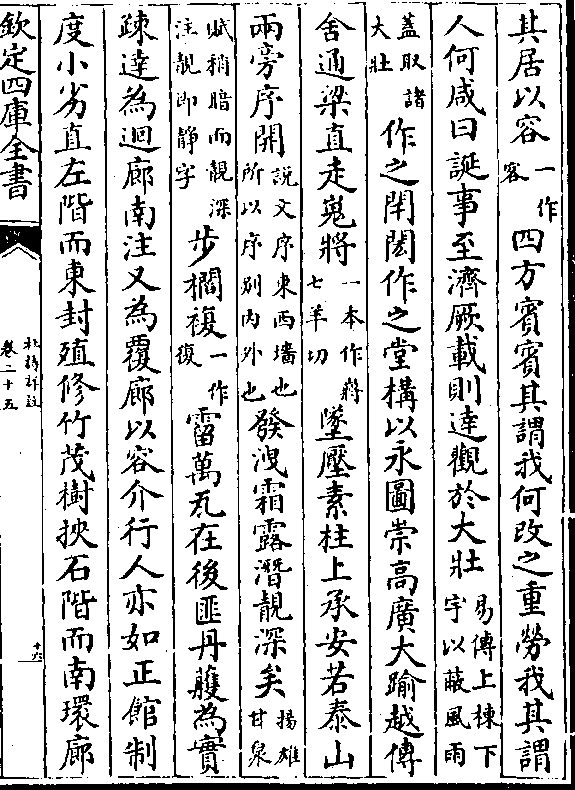 其居以容一作客四方賓賓其謂我何改之重勞我其謂
人何咸曰誕事至濟厥載則達觀於大壯易傳上棟下宇以蔽風雨
蓋取諸大壯作之閈閎作之堂構以永圖崇高廣大踰越傳
舍通梁直走嵬將一本作將七羊切墜壓素柱上承安若泰山
兩旁序開說文序東西墻也所以序别内外也發洩霜露潛靚深矣揚雄甘泉
賦稍暗而靚深注靚即静字步櫩複一作復霤萬瓦在後匪丹雘為實
疎達為迴廊南注又為覆廊以容介行人亦如正館制
度小劣直左階而東封殖修竹茂樹挾石階而南環廊
欽定四庫全書
杜詩詳註
卷二十五
十六